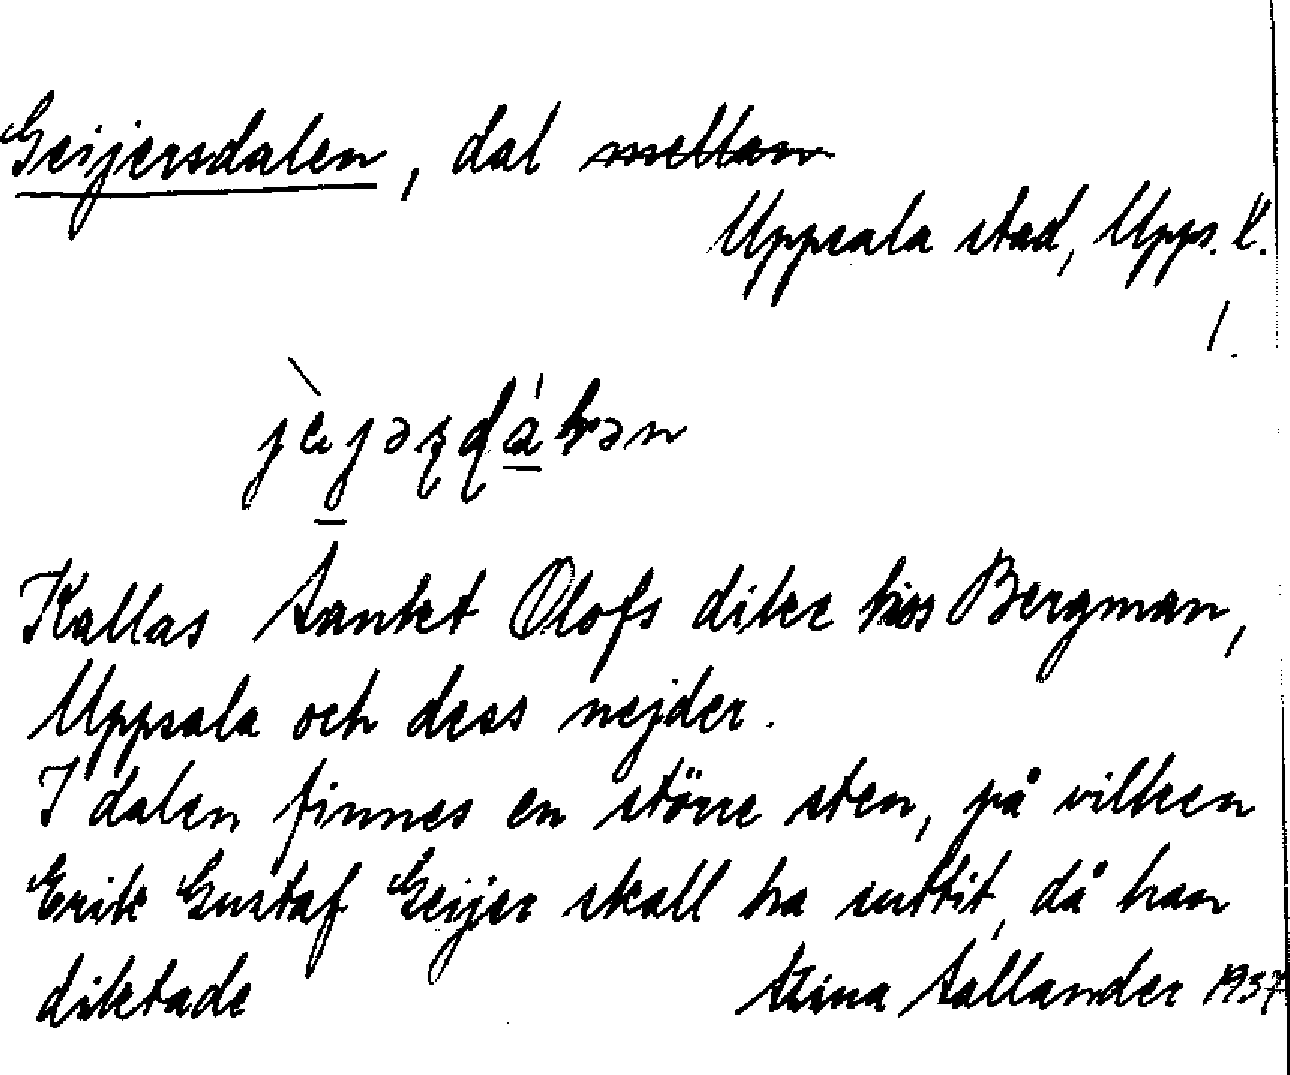 Geijersdalen, dal mellan
Uppsala stad, Upps. l.
1.
Kallas Sankt Olofs dike hos Bergman,
Uppsala och dess nejder.
I dalen finnes en större sten, på vilken
Erik Gustaf Geijer skall ha suttit, då han
diktade Stina Sallander 1937